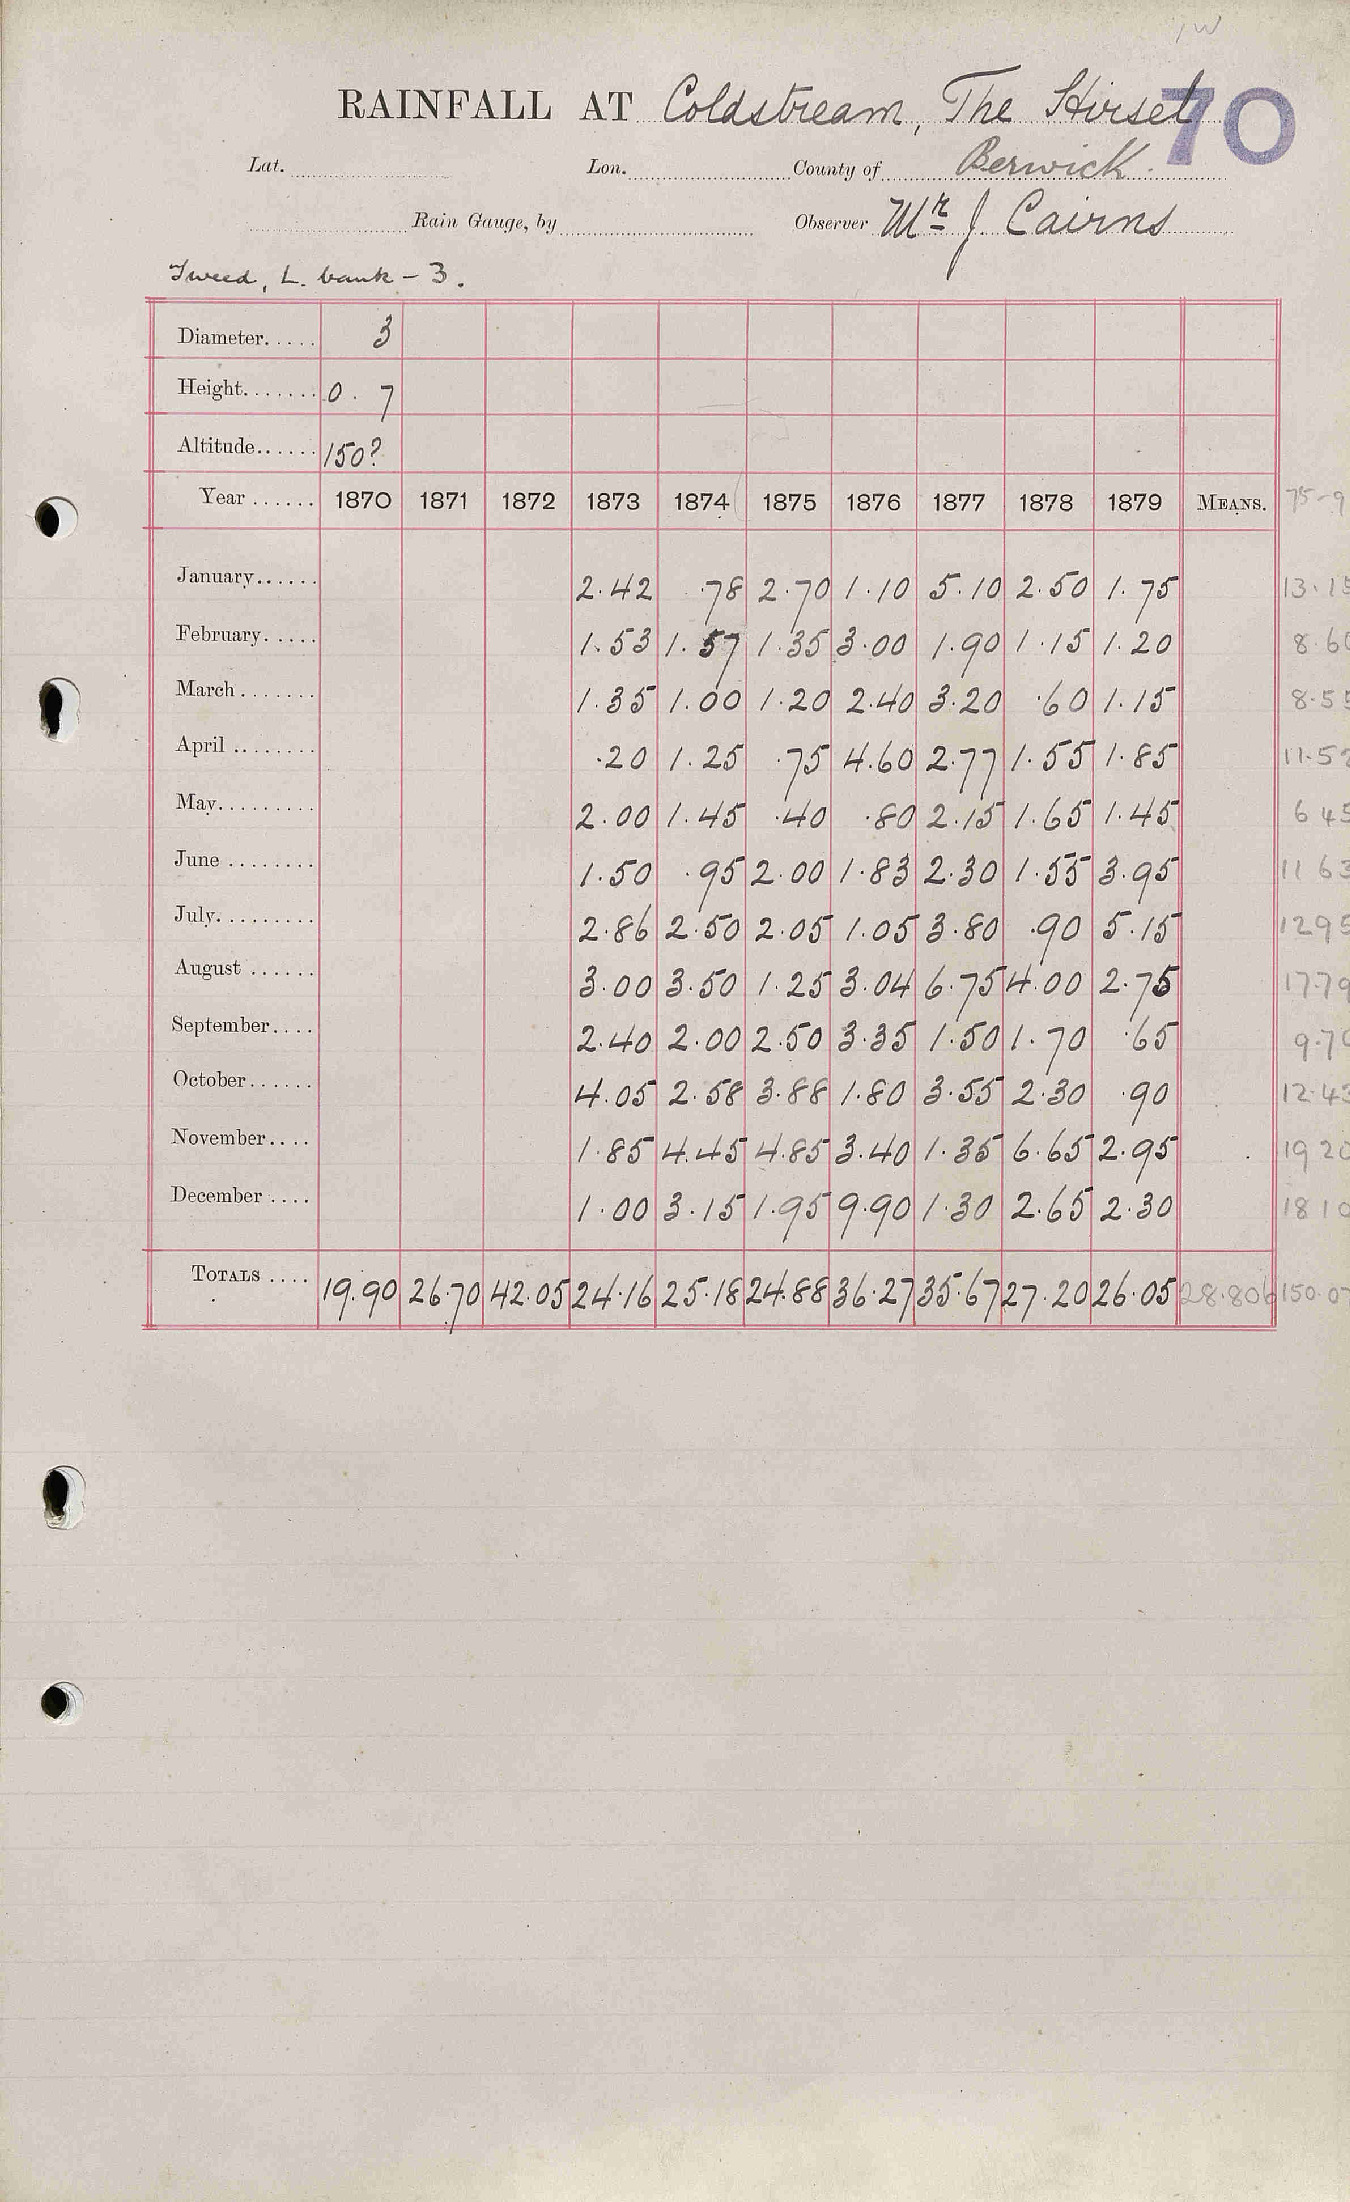 1W
RAINFALL AT Coldstream, The Hirsel 70
Lat. Lon. County of Berwick.
Rain Gauge, by Observer Mr J. Cairns
Tweed, L. bank - 3.
Diameter..... 3
Height....... 0. 7
Altitude...... 150?
Year ...... 1870 1871 1872 1873 1874 1875 1876 1877 1878 1879 MEANS. 75-9
January...... 2.42 .78 2.70 1.10 5.10 2.50 1.75 13.15
February..... 1.53 1.57 1.35 3.00 1.90 1.15 1.20 8.60
March....... 1.35 1.00 1.20 2.40 3.20 .60 1.15 8.55
April ........ .20 1.25 .75 4.60 2.77 1.55 1.85 11.52
May......... 2.00 1.45 .40 .80 2.15 1.65 1.45 6 45
June ........ 1.50 .95 2.00 1.83 2.30 1.55 3.95 11 63
July......... 2.86 2.50 2.05 1.05 3.80 .90 5.15 1295
August ...... 3.00 3.50 1.25 3.04 6.75 4.00 2.75 17.79
September.... 2.40 2.00 2.50 3.35 1.50 1.70 .65 9.70
October...... 4.05 2.58 3.88 1.80 3.55 2.30 .90 12.43
November.... 1.85 4.45 4.85 3.40 1.35 6.65 2.95 19 20
December .... 1.00 3.15 1.95 9.90 1.30 2.65 2.30 18 10
TOTALS .... 19.90 26.70 42.05 24.16 25.18 24.88 36.27 35.67 27.20 26.05 28.806 150.07